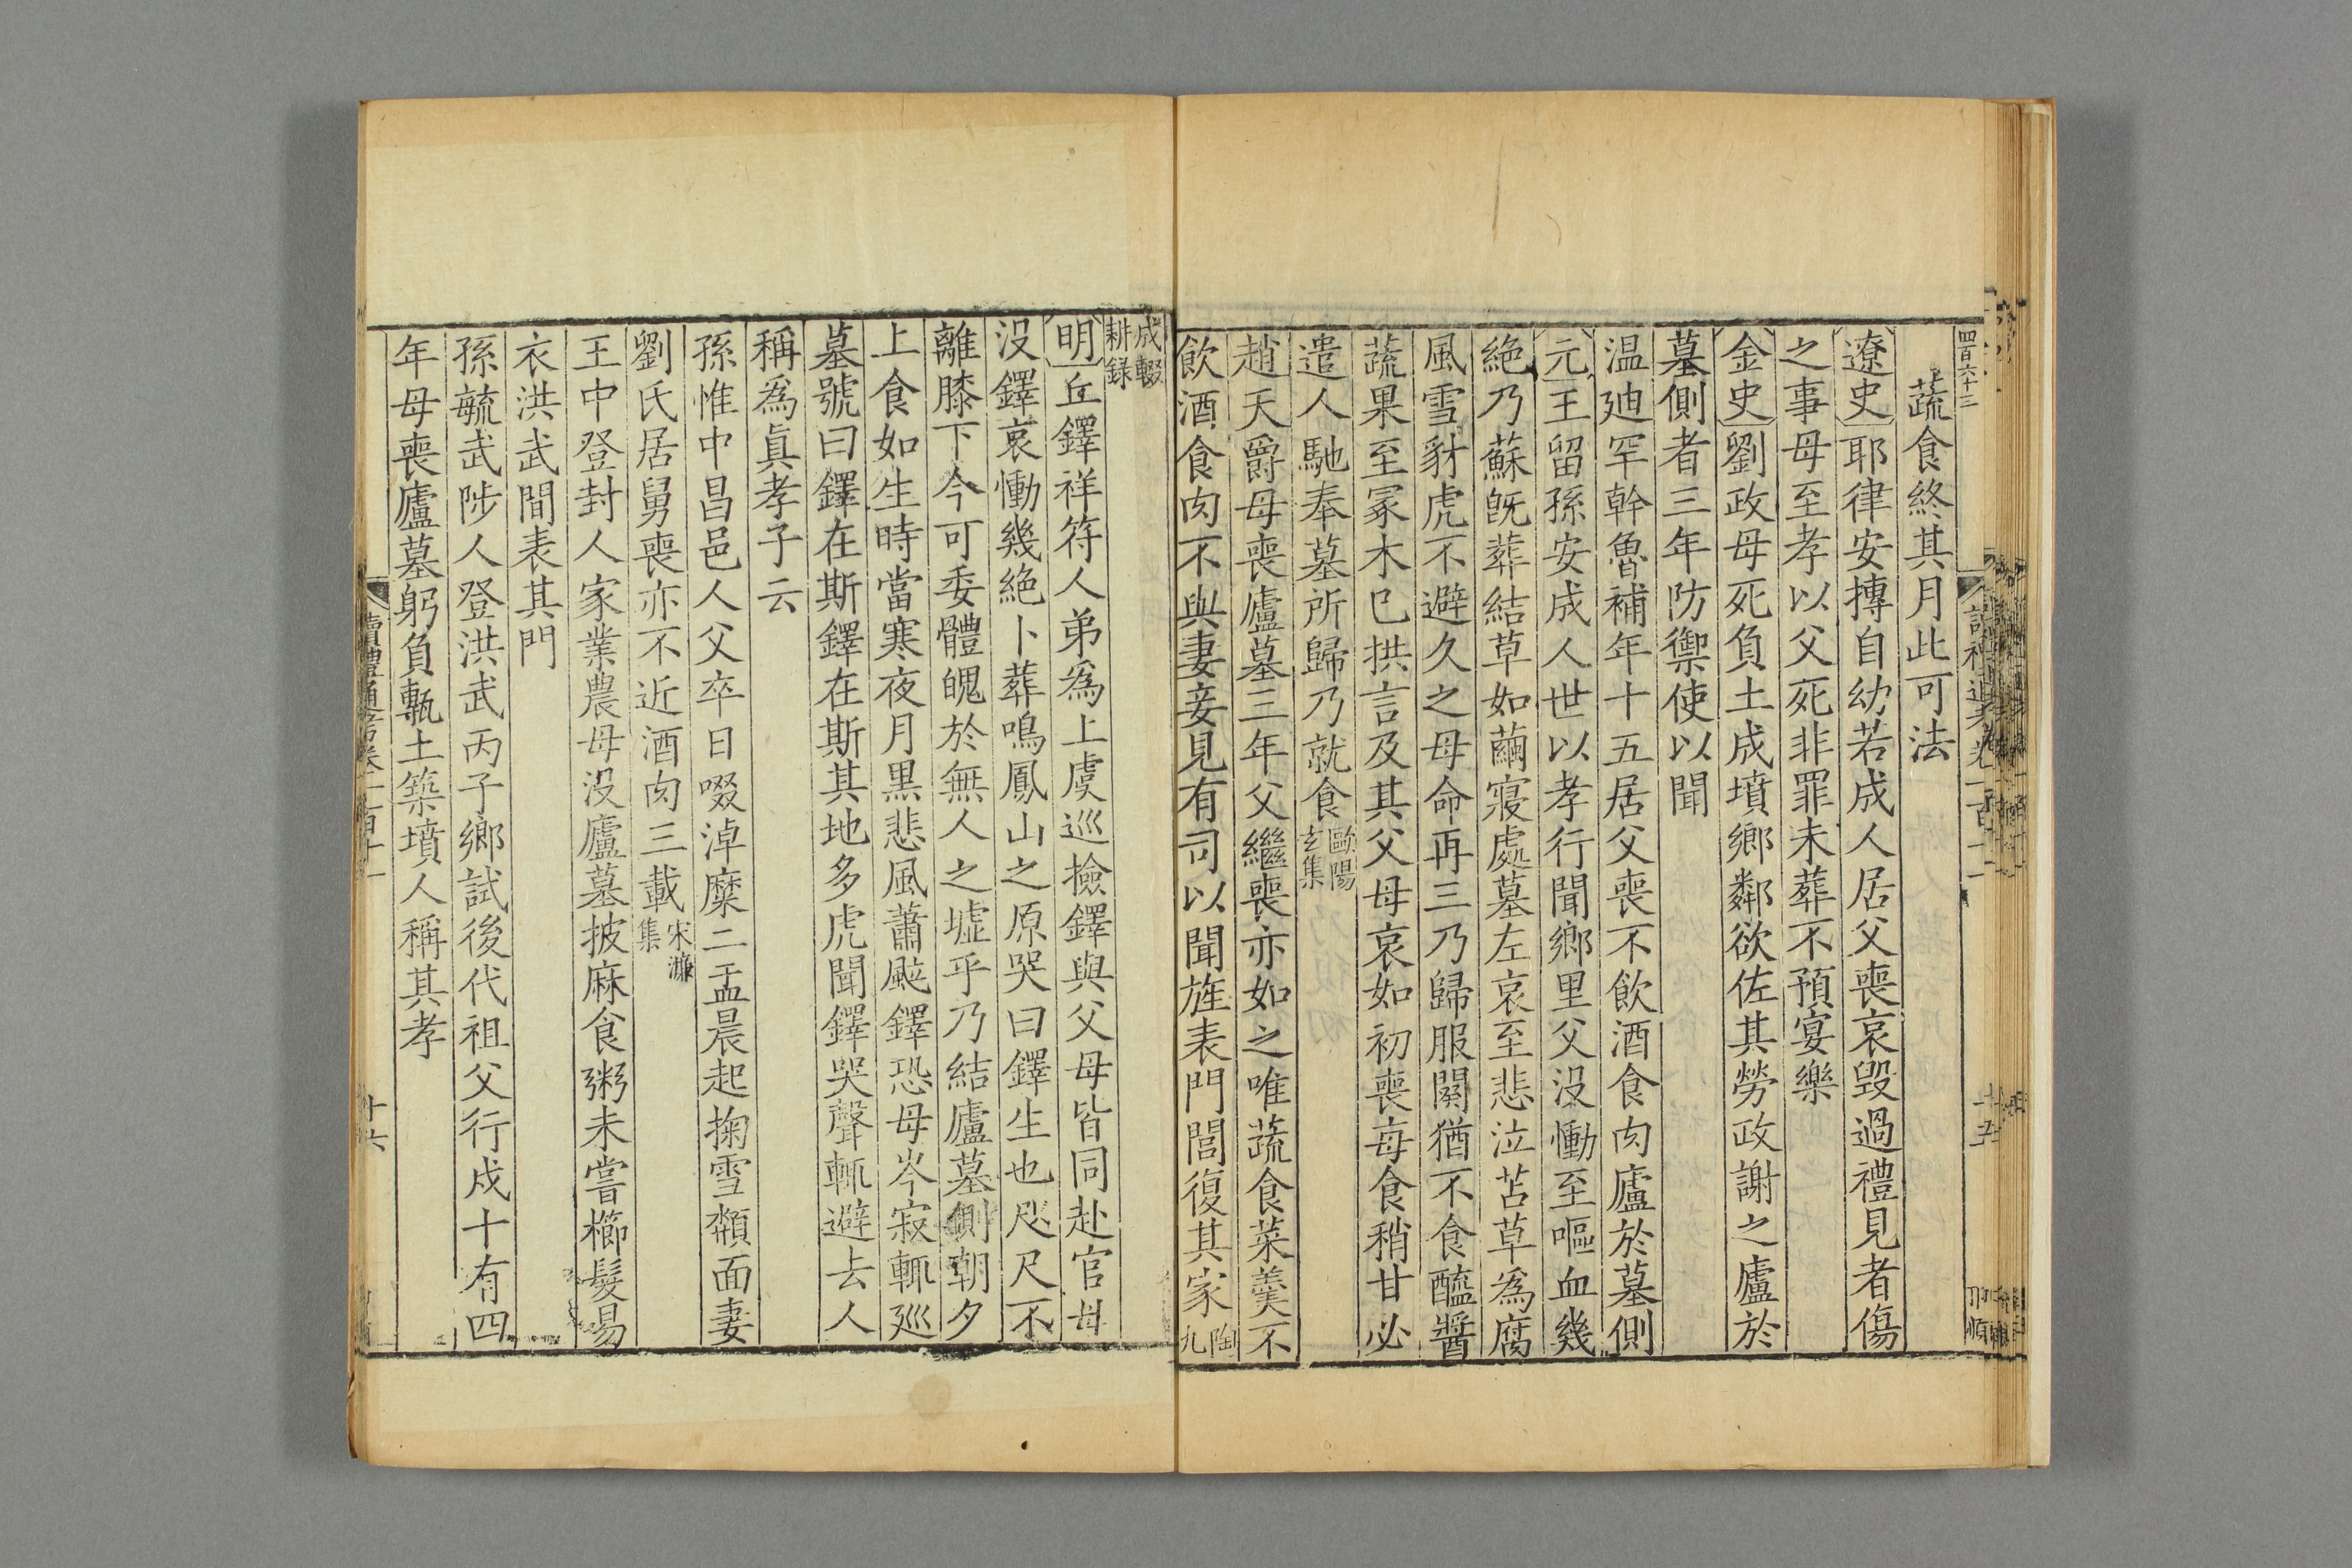 四百六十三
蔬食終其月此可法
遼史耶律安摶自幼若成人居父喪哀毀過禮見者傷
之事母至孝以父死非罪未葬不預宴樂
金史劉政母死負土成墳鄉鄰欲佐其勞政謝之廬於
墓側者三年防禦使以聞
温廸罕幹魯補年十五居父喪不飲酒食肉廬於墓側
元王留孫安成人世以孝行聞鄉里父沒慟至嘔血幾
絶乃蘇旣葬結草如繭寢處墓左哀至悲泣苫草爲腐
風雪豺虎不避久之母命再三乃歸服闋猶不食醯醬
蔬果至冢木已拱言及其父母哀如初喪每食稍甘必
遣人馳奉墓所歸乃就食歐陽玄集
趙天爵母喪廬墓三年父繼喪亦如之唯蔬食菜羹不
飲酒食肉不與妻妾見有司以聞旌表門閭復其家陶九
成輟耕錄
明丘鐸祥符人弟爲上虞巡撿鐸與父母皆同赴官母
沒鐸哀慟幾絶卜葬鳴鳳山之原哭曰鐸生也咫尺不
離膝下今可委體魄於無人之墟乎乃結廬墓側朝夕
上食如生時當寒夜月黑悲風蕭颼鐸恐母岑寂輒廵
墓號曰鐸在斯鐸在斯其地多虎聞鐸哭聲輒避去人
稱爲眞孝子云
孫惟中昌邑人父卒日啜淖糜二盂晨起掬雪頮面妻
劉氏居舅喪亦不近酒肉三載宋濂集
王中登封人家業農母沒廬墓披麻食粥未嘗櫛髮易
衣洪武間表其門
孫毓武陟人登洪武丙子鄉試後代祖父行戍十有四
年母喪廬墓躬負甎土築墳人稱其孝
讀禮通考卷一百十一
十六